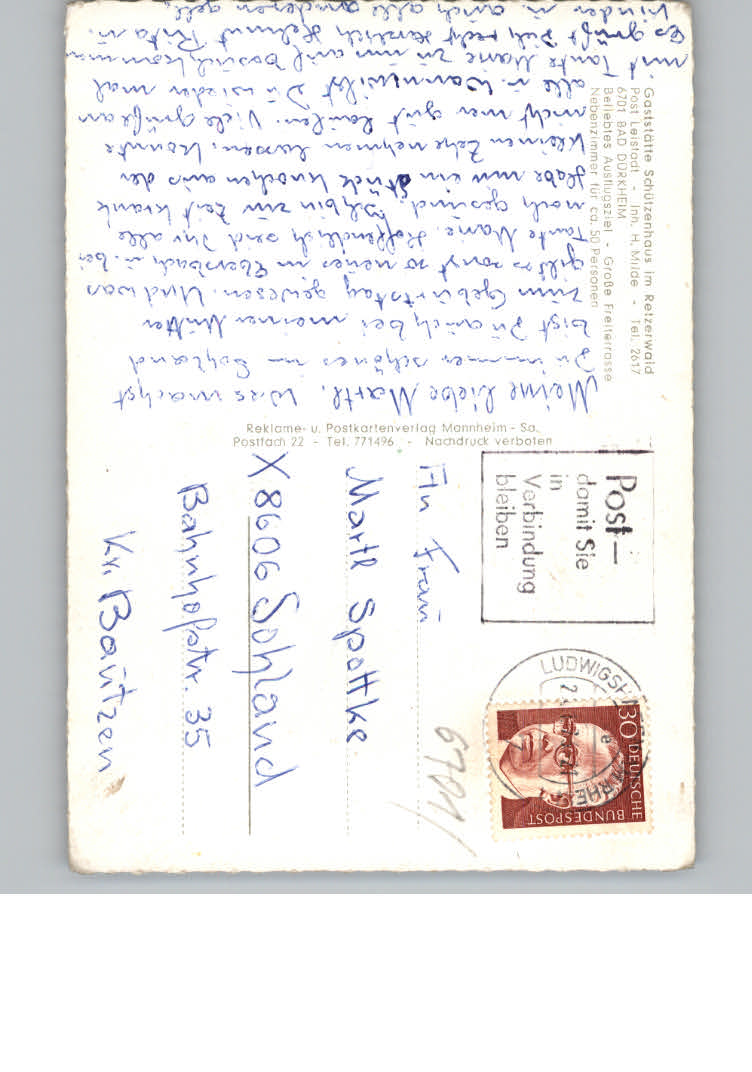 Gaststätte Schützenhaus im Retzerwald
Post Leistadt - Inh. H. Milde - Tel. 2617
6701 BAD DÜRKHEIM
Beliebtes Ausflugsziel - Große Freiterrasse
Nebenzimmer für ca. 50 Personen
Meine liebe Martl. Was machst
Du immer schönes in Sohland
bist Du auch bei meiner Mutter
zum Geburtstag gewesen. Und was
gibt es sonst so neues in Ebersbach u. bei
Tante Marie. Hoffendlich seid Ihr alle
noch gesund. Ich bin zur Zeit krank
Habe mir ein Stück Knochen aus der
kleinen Zehe nehmen lassen. Konnte
nicht mer gut laufen. Viele grüße an
alle u. wann willst Du wieder mal
mit Tante Marie zu uns auf Besuch kommen
Es grüßt Dich recht herzlich Helmut Ruta u.
Kinder u auch alle anderen gell.
Reklame- u. Postkartenverlag Mannheim - Sa.
Postfach 22 - Tel. 771496 - Nachdruck verboten
Post—
damit Sie
in
Verbindung
bleiben
LUDWIGSH
RHE
30 DEUTSCHE
BUNDESPOST
An Frau
Martl Spottke
X 8606 Sohland
Bahnhofstr. 35
Kr. Bautzen
6701